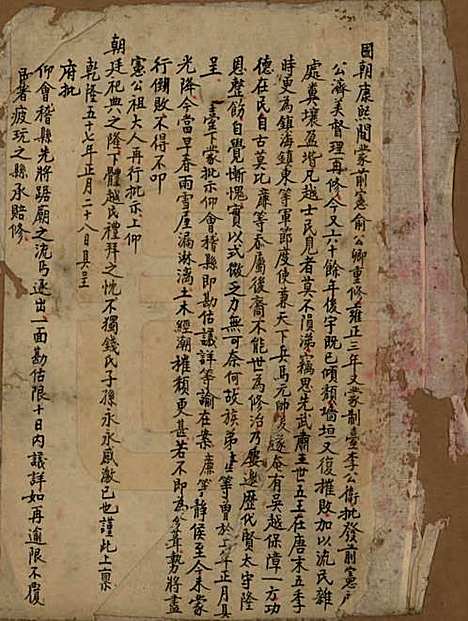 國朝康熙間蒙前憲俞公卿重修雍正三年又蒙制臺李公衛批發前憲
公濟美督理再修今又六十餘年後宇既已傾頹墻垣又復摧敗加以流民雜
處糞壤盈堦凡越士民見者莫不隕涕竊思先武肅王世五王在唐末五季
時更為鎮海鎮東等軍節度使兼天下兵馬元帥後遂奄有吳越保障一方功
德在民自古莫比廉等忝屬後裔不能世為修治乃屢邀歷代賢太守隆
恩整飭自覺慚愧實以式微乏力無可奈何故族弟士等曾於上年正月具
呈 臺蒙批示仰會稽縣即勘估議詳等諭在案廉等靜侯至今未蒙
光降今當早春雨雪屋漏淋漓土木經潮摧頹更甚若不即為葺勢將盡
行倒敗不得不叩
憲公祖大人再行批示上仰
朝廷祀典之隆下體越民禮拜之忱不獨錢氏子孫永永感激已也謹此上稟
乾隆五十七年正月二十八日具呈
府批
仰會稽縣先將踞廟之流丐逐出一面勘估限十日內議詳如再逾限不覆
定著疲玩之縣永賠修